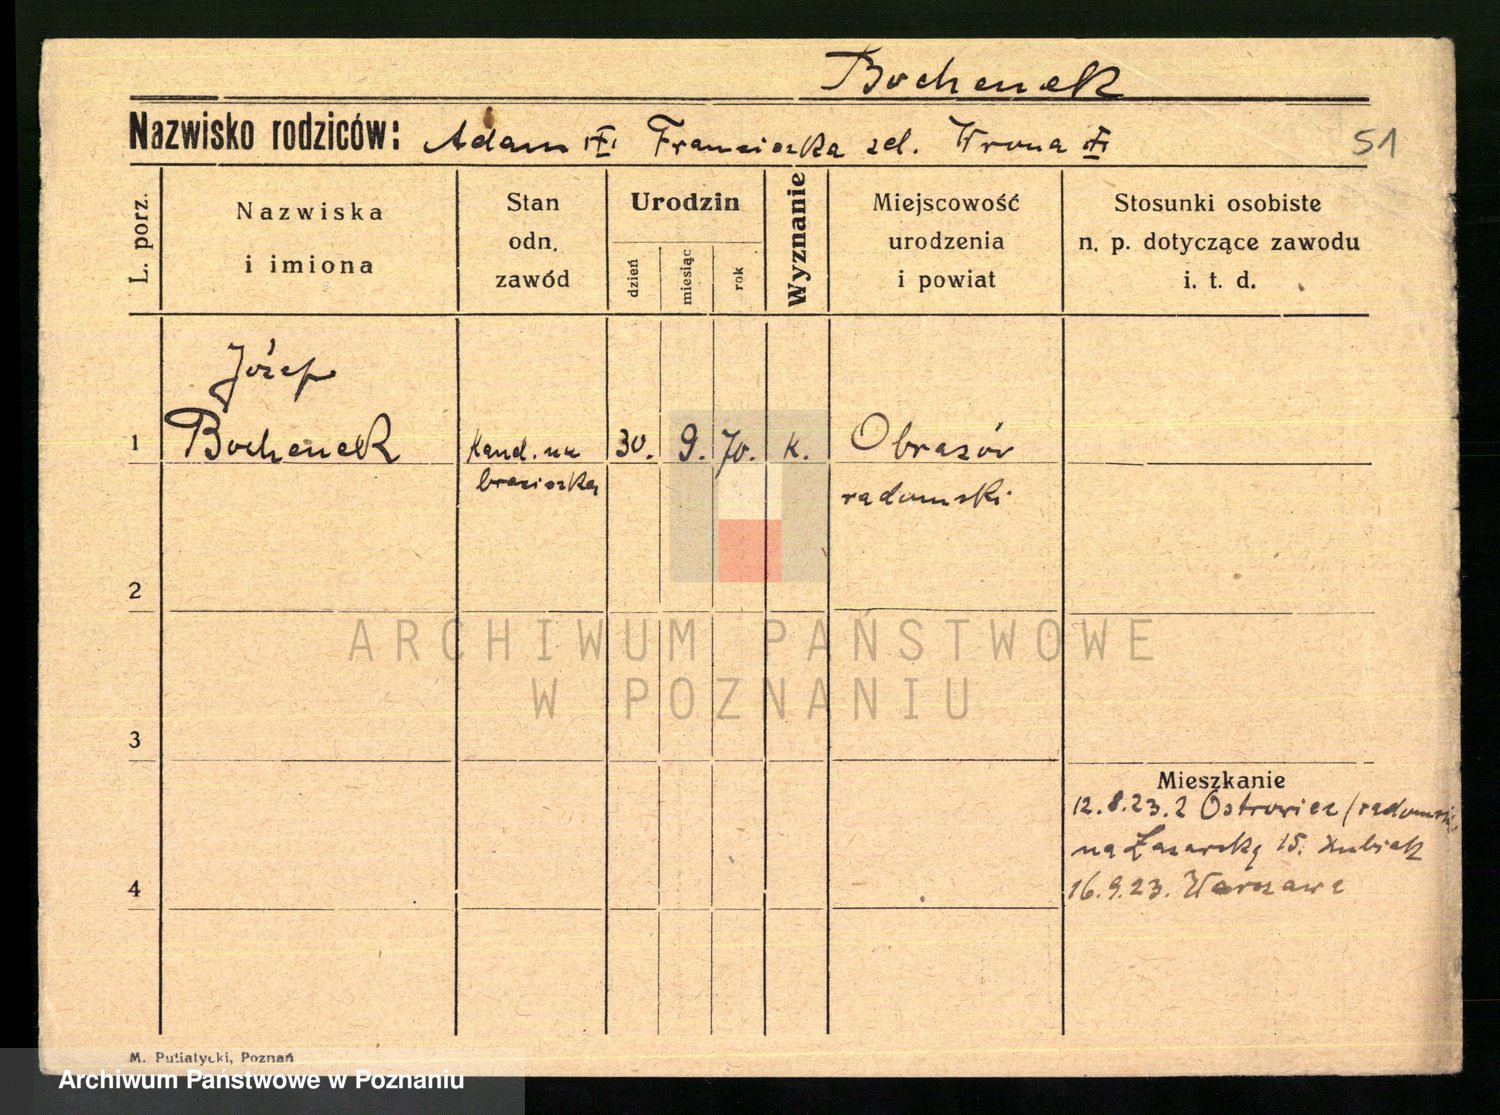 Bochenek
Nazwisko rodziców: Adam Franciszka zd. Wrona
51
L. porz.
Nazwiska
i imiona
Stan
odn.
zawód
Urodzin
dzień
miesiąc
rok
Wyznanie
Miejscowość
urodzenia
i powiat
Stosunki osobiste
n. p. dotyczące zawodu
i. t. d.
Józef
1 Bochenek Kand. na 30. 9. 70. k. Obrazów
braciszka radomski
2
3
4
ARCHIWUM PAŃSTWOWE
W POZNANIU
Mieszkanie
12.8.23. z Ostrowiec /radomski
na Łazarską 15.
16.9.23. Warszawa
M. Putiatycki, Poznań
Archiwum Państwowe w Poznaniu